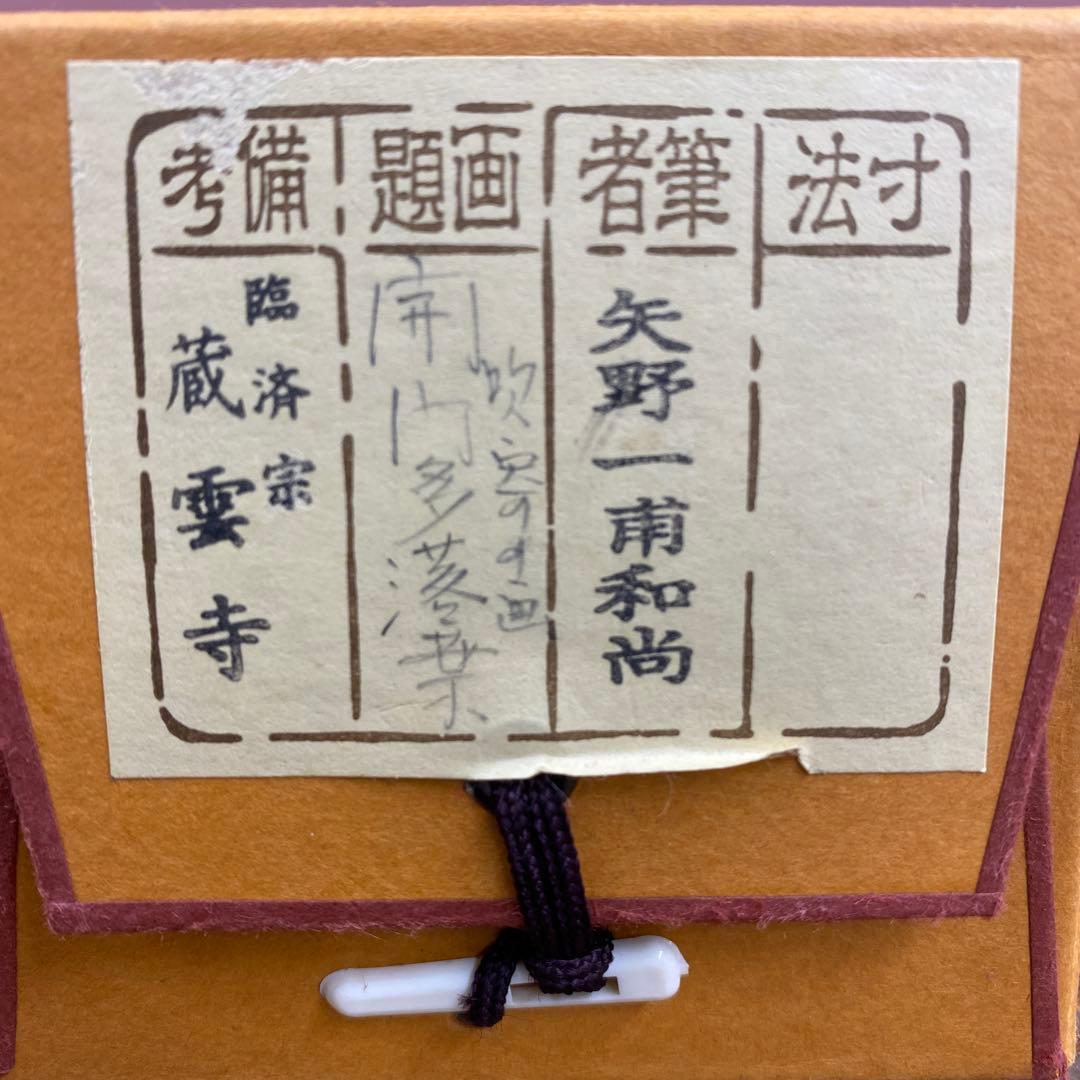 寸法
筆者
矢野一甫和尚
画題
吹寄の画
開門多落葉
備考
臨済宗
蔵雲寺